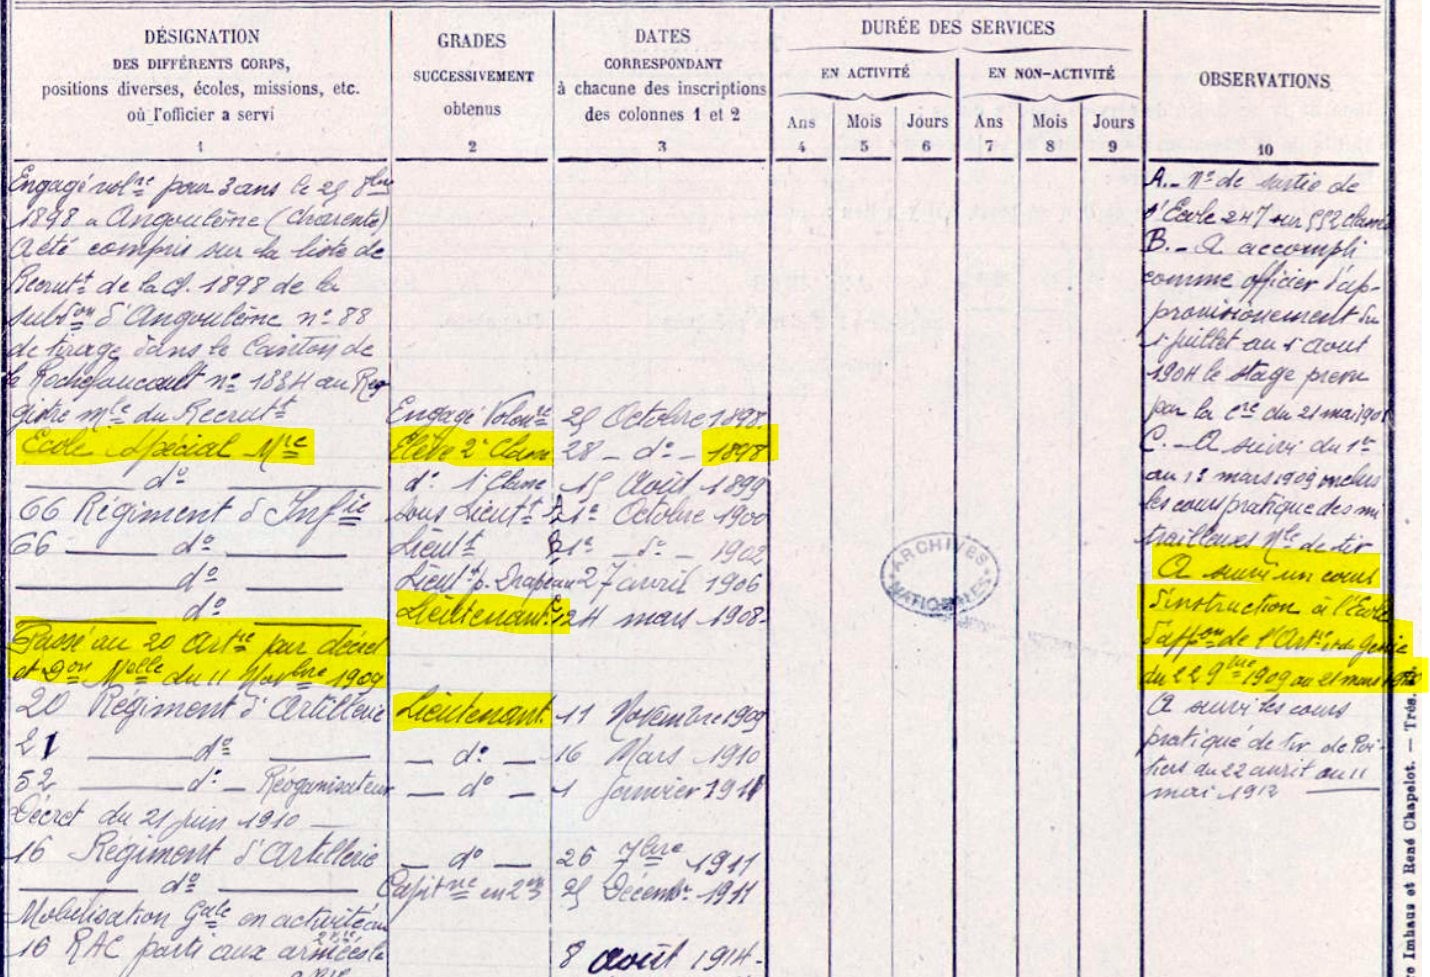 DÉSIGNATION
DES DIFFÉRENTS CORPS,
positions diverses, écoles, missions, etc.
où l'officier a servi
1
GRADES
SUCCESSIVEMENT
obtenus
2
DATES
CORRESPONDANT
à chacune des inscriptions
des colonnes 1 et 2
3
DURÉE DES SERVICES
EN ACTIVITÉ
EN NON-ACTIVITÉ
Ans Mois Jours Ans Mois Jours
4 5 6 7 8 9
OBSERVATIONS
10
Engagé volre pour 3 ans le 25 8bre
1898 a Angoulême (Charente)
A été compris sur la liste de
Recrutt de la cl. 1898 de la
subdon d'Angoulême no 88
de tirage dans le Canton de
la Rochefoucault no 1834 au Re-
gistre mle du Recrutt
Engagé Volonre 25 Octobre 1898.
Ecole Spécial Mre Elève 2e Classe 28 - do - 1898
do do 1e Classe 15 Août 1899
66 Régiment d'Infie Sous Lieutt A 1er Octobre 1900
66 do Lieutt B 1er - do - 1902
do Lieutt p. Drapeau 27 avril 1906
do Lieutenant C 24 mars 1908
Passé au 20 Artie par décret
et Don Melle du 11 Novbre 1909
20 Régiment d'Artillerie Lieutenant. 11 Novembre 1909
21 do - do - 16 Mars 1910
52 do - Réoganisateur - do - 1 janvier 1911
Décret du 21 juin 1910
16 Régiment d'Artillerie - do - 26 7bre 1911
do Capitne en 2nd 25 Décembr. 1911
Mobilisation Gale en activité au
16 RAC parti aux armées le 8 août 1914-
A.- No de sortie de
l'Ecole 247 sur 552 classés
B.- A accompli
comme officier d'ap-
provisionement du
1r juillet au 1r aout
1904 le stage prevu
par la cre du 21 mai
C.- A suivi du 1er
au 13 mars 1909 inclus
les cours pratique des mi
trailleuses Nle de tir
A suivi un cours
d'instruction à l'Ecole
d'appon de l'Artie et du Genie
du 22 9bre 1909 au 21 mars 1910
A suivi les cours
pratique de tir de Poi-
tiers du 22 avril au 11
mai 1912
ARCHIVES
NATIONALES
Imhaus et René Chapelot. —